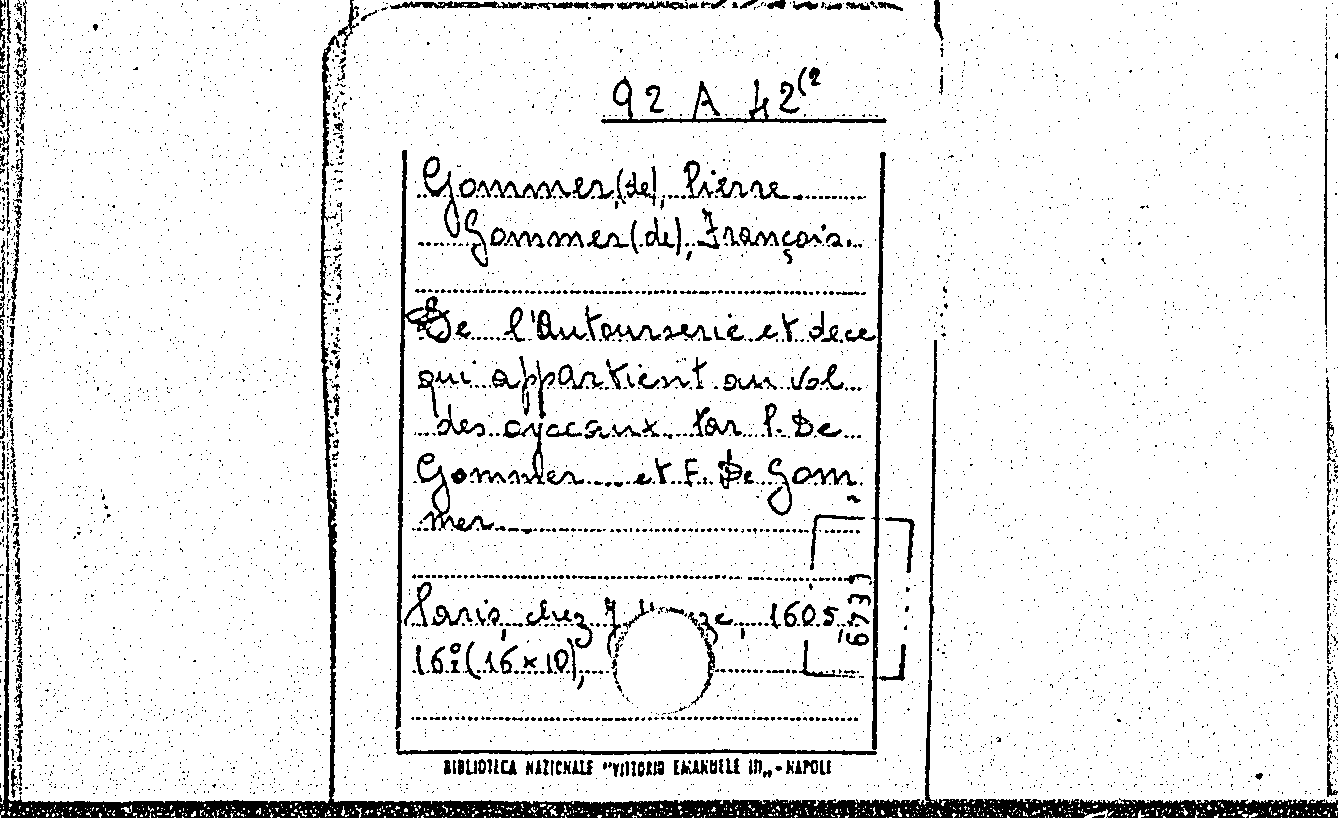 92 A 42(2
Gommer (de), Pierre
Gommer (de), François
De l'Autourserie et de ce
qui appartient au vol
des oyseaux. Par P. De
Gommer et F. De Gom-
mer
Paris, chez J. 1605,
16º (16x10),
6733
BIBLIOTECA NAZIONALE "VITTORIO EMANUELE III" - NAPOLI